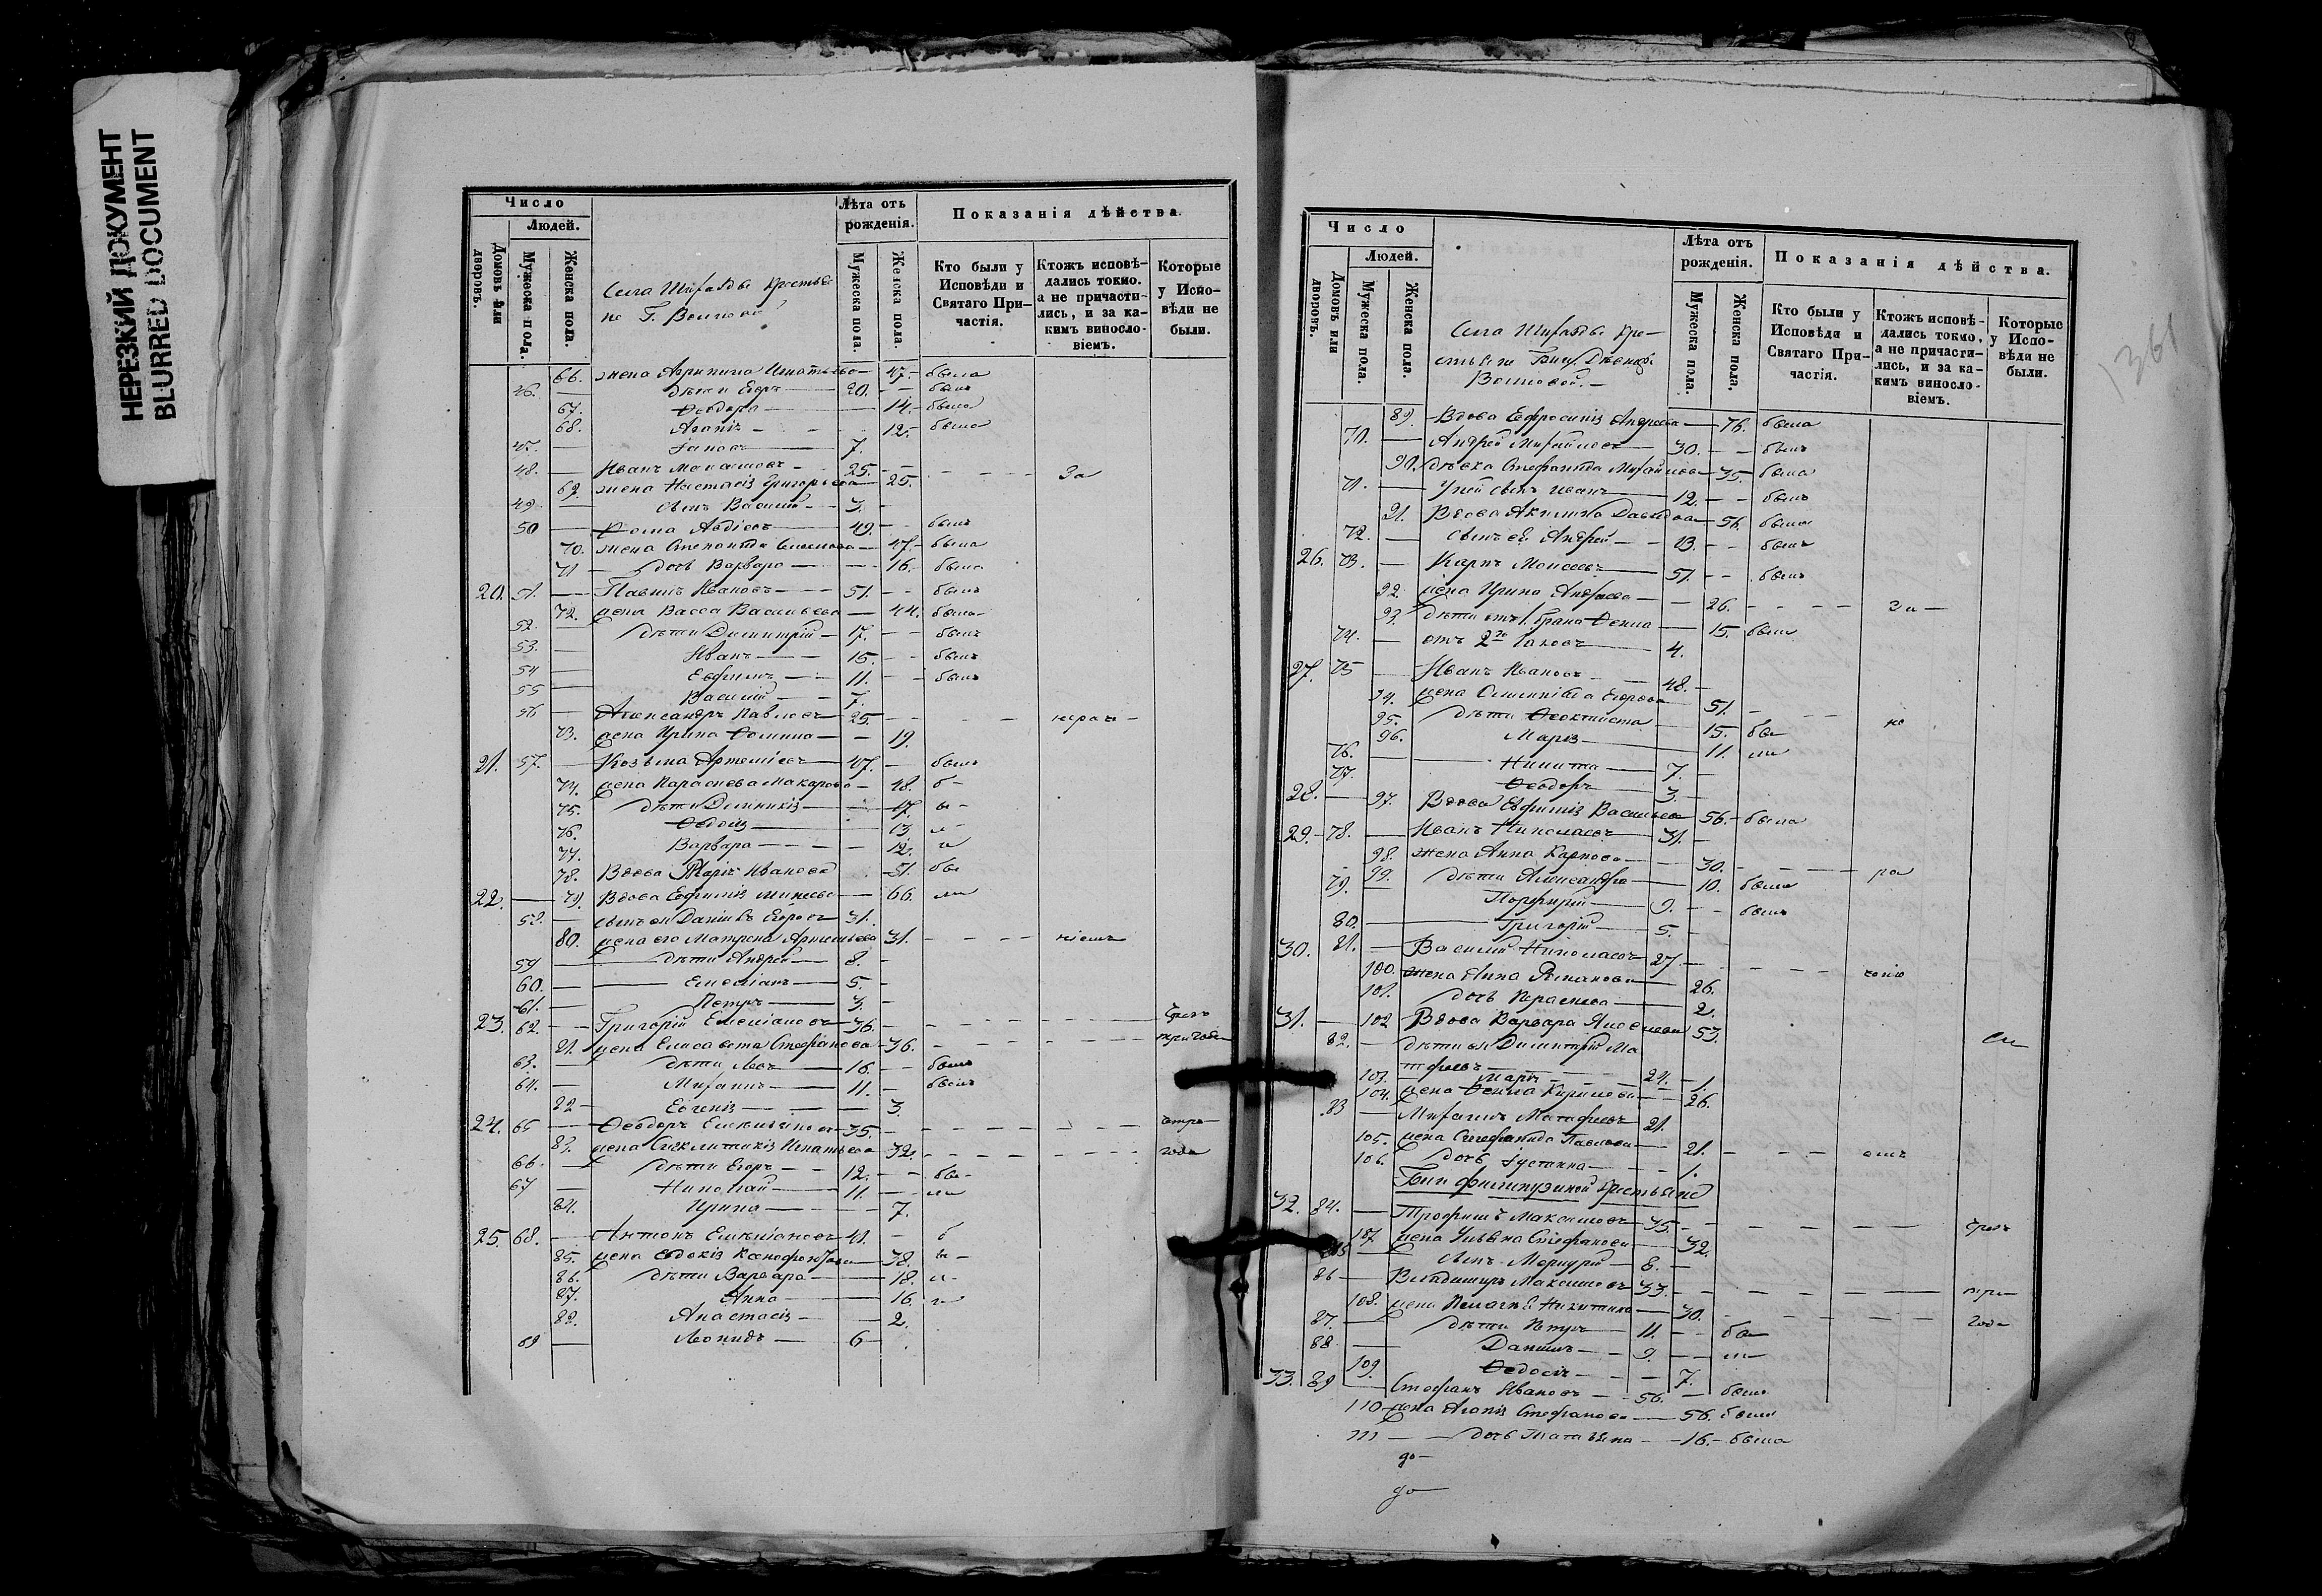 НЕРЕЗКИЙ ДОКУМЕНТ
BLURRED DOCUMENT
Число
Людей.
Домовъ или дворовъ.
Мужеска пола.
Женска пола.
Лѣта отъ рожденія.
Мужеска пола.
Женска пола.
Показанія дѣйства.
Кто были у Исповѣди и Святаго Причастія.
Ктожъ исповѣдались токмо, а не причастились, и за какимъ винословіемъ.
Которые у Исповѣди не были.
66. жена Агрипина Игнатьева 47. была
46. дѣти Егоръ 20. былъ
67. Ѳеодора 14. была
68. Агапія 12. была
47. Іаковъ 7.
48. Иванъ 25. За
69. жена Настасія Григорьева 25.
49. сынъ Василій 3.
50 Ѳома Авдіевъ 49. былъ
70. жена 47. была
71 дочь Варвара 16. была
20. 51. Павелъ Ивановъ 51. былъ
72. жена Васса Васильева 44. была
52. дѣти Димитрій 17. былъ
53. Иванъ 15. былъ
54 Евфимъ 11. былъ
55 Василій 7.
56 Александръ Павловъ 25.
73. жена Ирина Ѳомина 19.
21. 57. Козьма Артемьевъ 47. былъ
74. жена Параскева Макарова 48. б
75. дѣти Домникія 17. ы
76. Ѳеодосія 13. л
77. Варвара 12. и
78. Вдова Марія Иванова 51. бы
22. 79. Вдова Евфимія 66. ли
58. сынъ ея Даніилъ Егоровъ 31.
80. жена его Матрена Артемьева 31. ніемъ
59 дѣти Андрей 8.
60. Емеліанъ 5.
61. Петръ 3.
23. 62. Григорій Емеліановъ 36.
81. жена Елисавета Стефанова 36.
63. дѣти Левъ 16. былъ
64. Михаилъ 11. былъ
82 Евгенія 3.
24. 65 Ѳеодоръ Емельяновъ 35.
83. жена Синклитикія Игнатьева 32. года
66. дѣти Егоръ 12. бы
67 Николай 11. ли
84. Ирина 7.
25. 68. Антонъ Емеліановъ 41. б
85. жена Евдокія Ксенофонтова 38. ы
86. дѣти Варвара 18. л
87. Анна 16. и
88. Анастасія 2.
69 Леонидъ 6
Число
Людей.
Домовъ или дворовъ.
Мужеска пола.
Женска пола.
Лѣта отъ рожденія.
Мужеска пола.
Женска пола.
Показанія дѣйства.
Кто были у Исповѣди и Святаго Причастія.
Ктожъ исповѣдались токмо, а не причастились, и за какимъ винословіемъ.
Которые у Исповѣди не были.
1361
89. Вдова Евфросинія Андреева 76. была
70. Андрей Михайловъ 30. былъ
90. дѣвка Стефанида Михайлова 35. была
71. У ней сынъ Иванъ 12. былъ
91. Вдова Акилина Давыдова 56. была
72. сынъ ея Андрей 13. былъ
26. 73. Карпъ Моисеевъ 51. былъ
92. жена Ирина Андреева 26. За
93. дѣти отъ 1. брака Ѳекла 15. была
74. отъ 2го Іаковъ 4.
27. 75 Иванъ Ивановъ 48.
94. жена Олимпіада Егорова 51. не
95. дѣти Ѳеоктиста 15. бы
96. Марія 11. ли
76. Никита 7.
77. Ѳеодоръ 3.
28. 97. Вдова Евфимія Васильева 56. была
29. 78. Иванъ Николаевъ 31.
98. жена Анна Карпова 30. ра
99. дѣти Александра 10. была
79. Порфирій 9. былъ
80. Григорій 5.
30. 81. Василій Николаевъ 27.
100. жена Анна Романова 26.
101. дочь Параскева 2.
31. 102 Вдова Варвара 53.
82. дѣти ея Димитрій Матфеевъ 24.
103. Марія 1.
104. жена Ѳекла Кирилова 26.
83 Михаилъ Матфеевъ 21.
105. жена Стефанида Павлова 21.
106. дочь Іустинна 1.
32. 84. Трофимъ Максимовъ 35.
107 жена Ульяна Стефанова 32.
85 сынъ Меркурій 8.
86 Владимиръ Максимовъ 33. три
108. жена Пелагія Никитина 30. года
87. дѣти Петръ 11. бы
88 Даніилъ 9. ли
109. Ѳеодосія 7.
33. 89 Стефанъ Ивановъ 56. былъ
110 жена Агапія Стефанова 56. была
111 дочь Татьяна 16. была